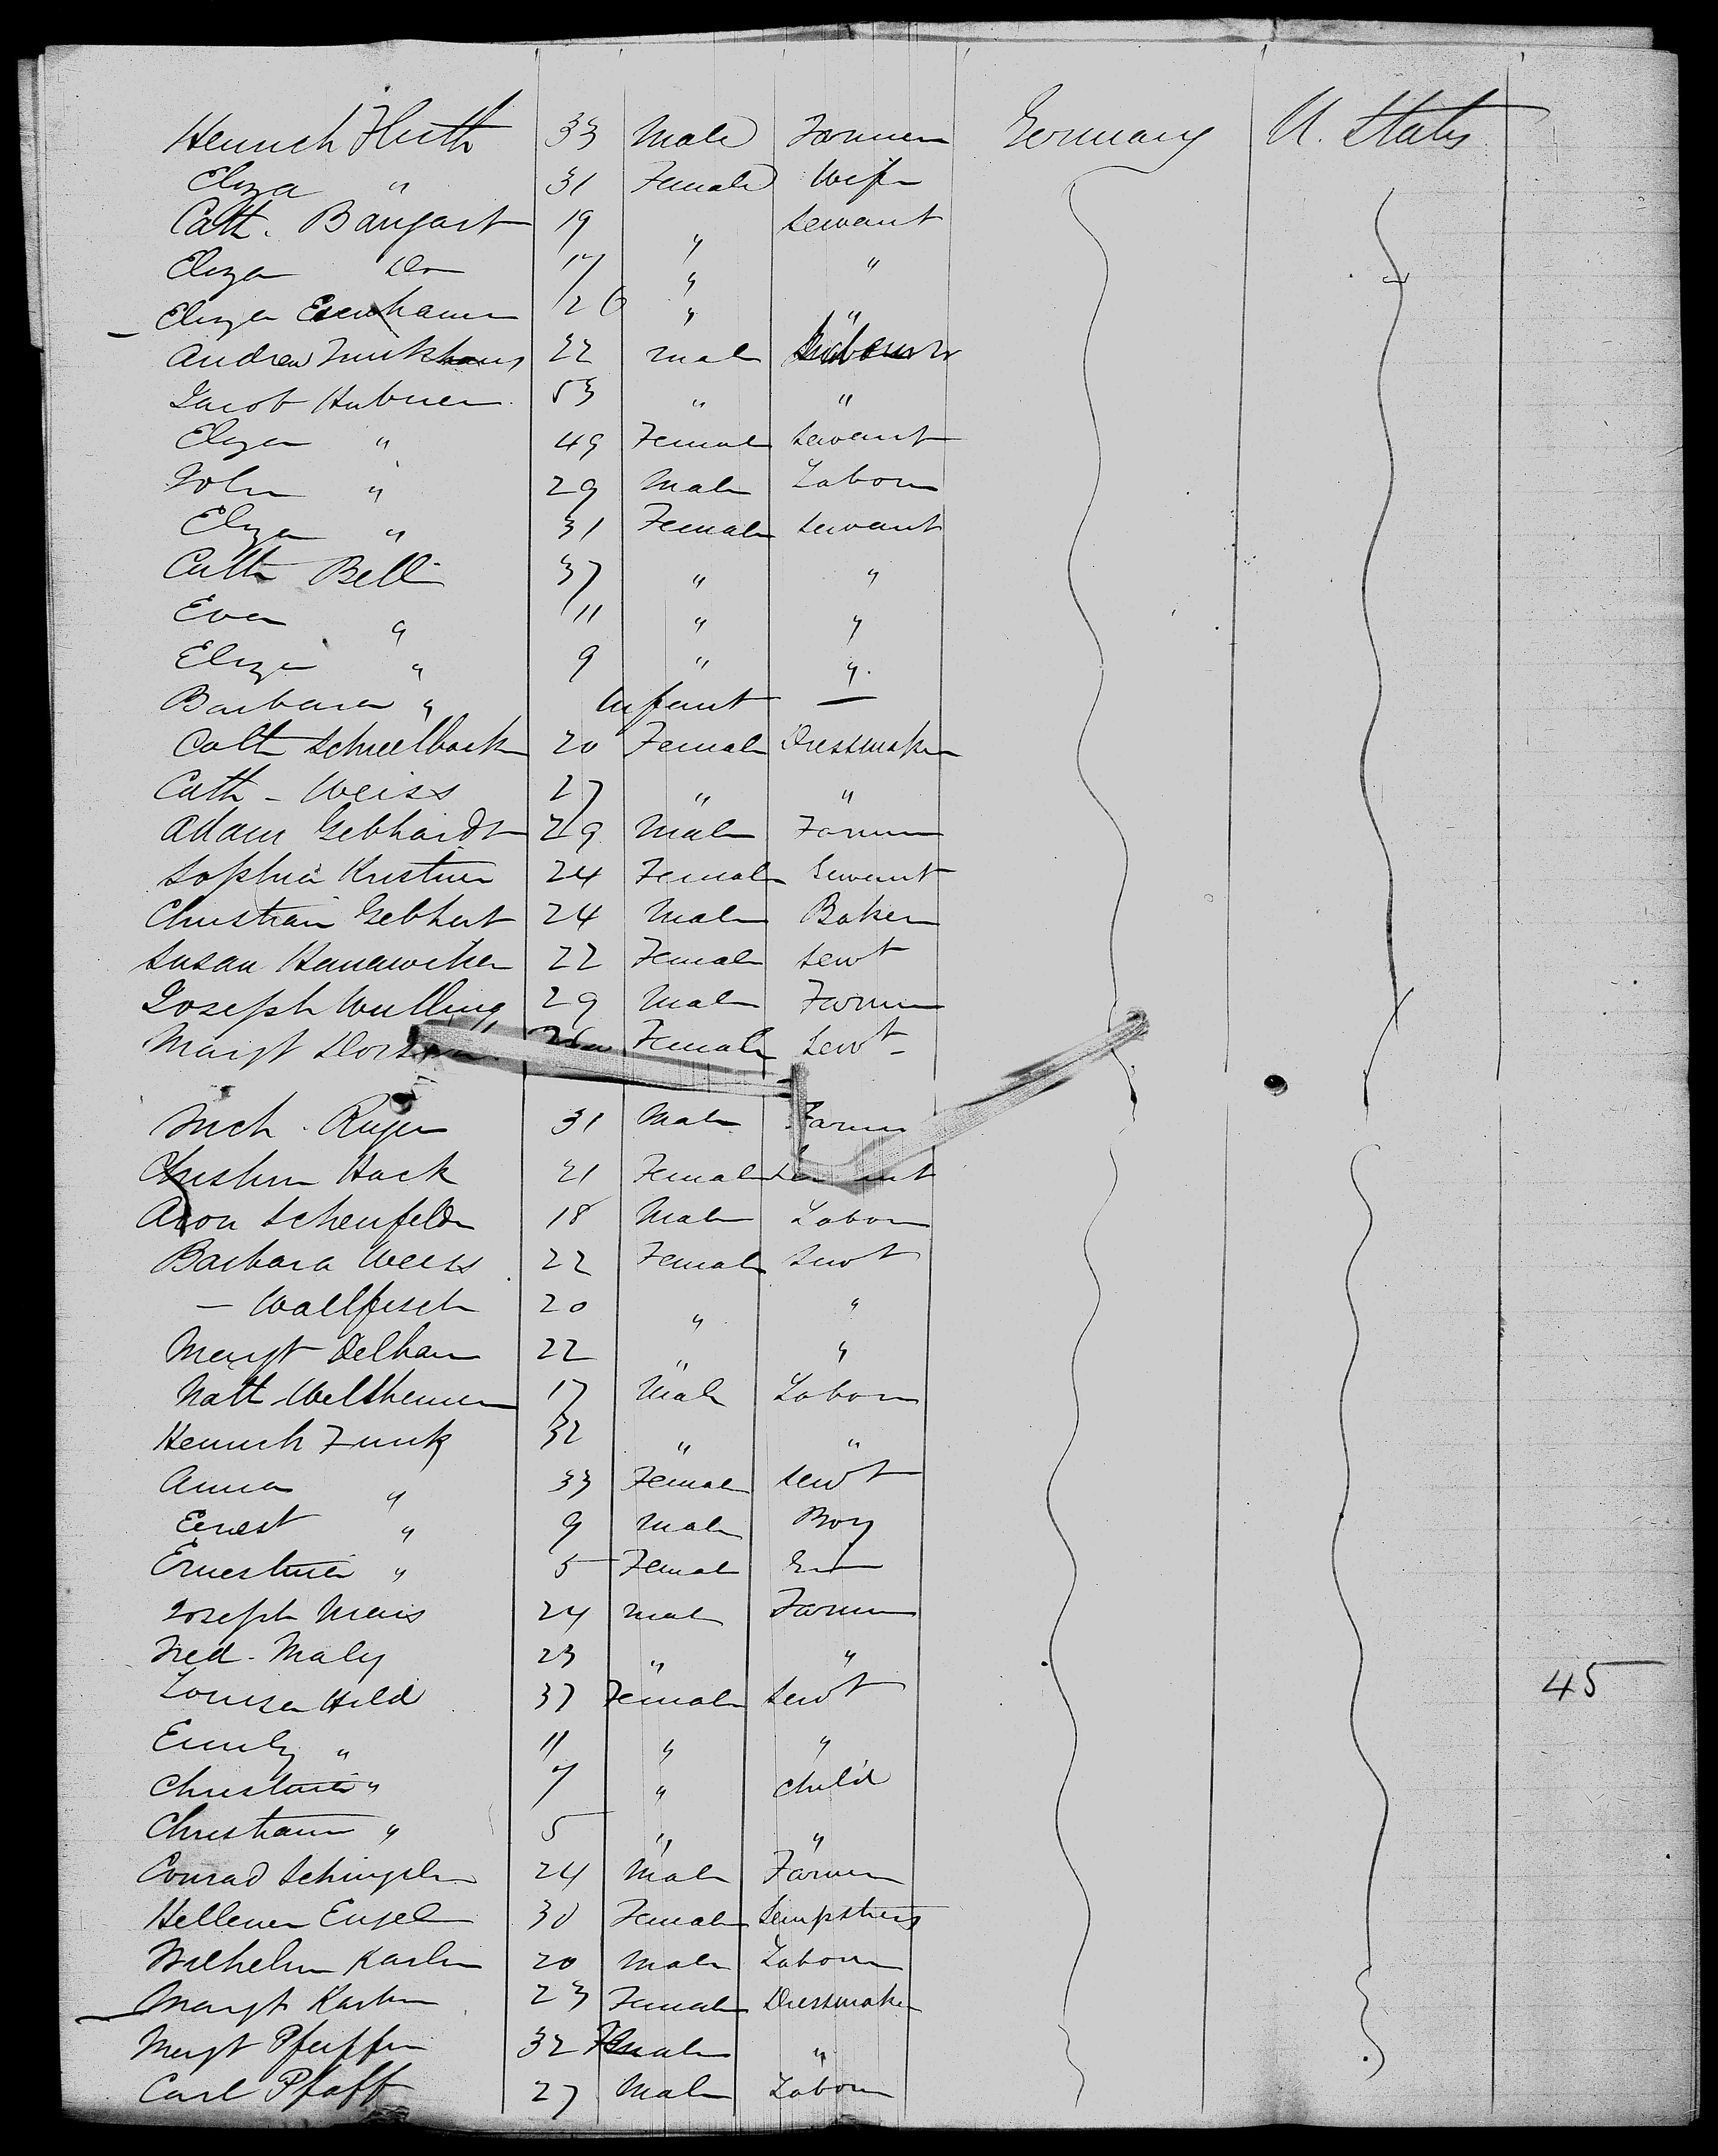 Heinrich Huth 33 Male Farmer Germany U. States
Eliza " 31 Female Wife
Cath. Bangart 19 " Servant
Eliza Do 17 " "
Eliza 20 " "
Andrew 22 Male Labourer
Jacob Hubner 53 " "
Eliza " 49 Female Servant
John " 29 Male Labour
Eliza " 31 Female Servant
Cath Bell 37 " "
Eva " 11 " "
Eliza " 9 " "
Barbara " Infant —
Cath 20 Female Dressmaker
Cath - Weiss 27 " "
Adam Gebhardt 29 Male Farmer
Sophia Kristner 24 Female Servant
Christian Gebhert 24 Male Baker
Susan 22 Female Servt
Joseph Wulling 29 Male Farmer
Margt Female Servt -
31 Male Farmer
Hack 21 Female
Aron Schenfelder 18 Male Labour
Barbara Weiss 22 Female Servt
— Wallfisch 20 " "
Margt Delhan 22 " "
17 Male Labour
Heinrich Funk 32 " "
Anna " 33 Female Servt
Ernest " 9 Male Boy
Ernestine " 5 Female
Joseph 24 Male Farmer
Fred. Maly 23 " "
Louisa Hild 37 Female Servt 45
Emily " 11 " "
Christine " 7 " child
Christiana " 5 " "
Conrad 24 Male Farmer
Hellena Engel 30 Female Sempstress
Wilhelm Karln 20 Male Labour
Margt Karln 23 Female Dressmaker
Margt Pfeiffer 32 Female "
Carl Pfaff 27 Male Labour